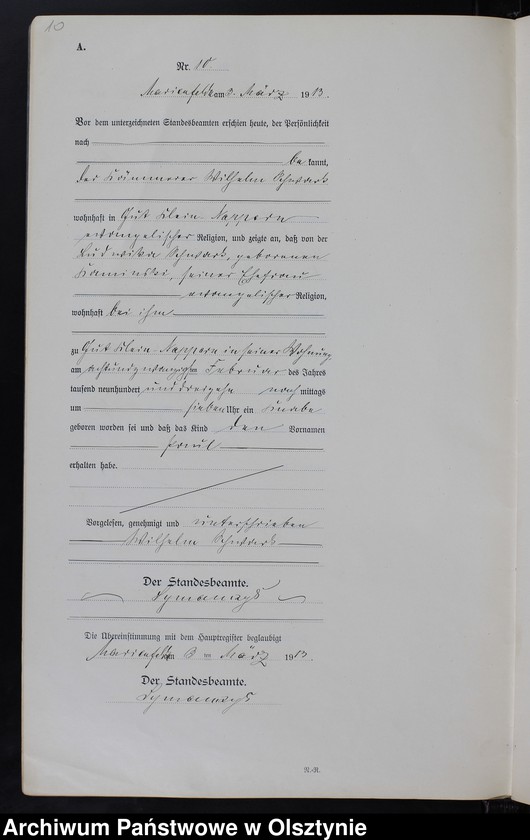 10
A.
Nr. 10.
Marienfelde am 3. März 1913.
Vor dem unterzeichneten Standesbeamten erschien heute, der Persönlichkeit
nach
be kannt,
der Kämmerer Wilhelm
wohnhaft in Gut Klein Nappern
evangelischer Religion, und zeigte an, daß von der
Ludwika geborenen
Kaminski, seiner Ehefrau
evangelischer Religion,
wohnhaft bei ihm
zu Gut Klein Nappern in seiner Wohnung
am achtundzwanzigsten Februar des Jahres
tausend neunhundert und dreizehn nach mittags
um sieben Uhr ein Knabe
geboren worden sei und daß das Kind den Vornamen
Paul
erhalten habe.
Vorgelesen, genehmigt und unterschrieben
Wilhelm
Der Standesbeamte.
Die Übereinstimmung mit dem Hauptregister beglaubigt
Marienfelde am 3 ten März 1913.
Der Standesbeamte.
N.-R.
Archiwum Państwowe w Olsztynie